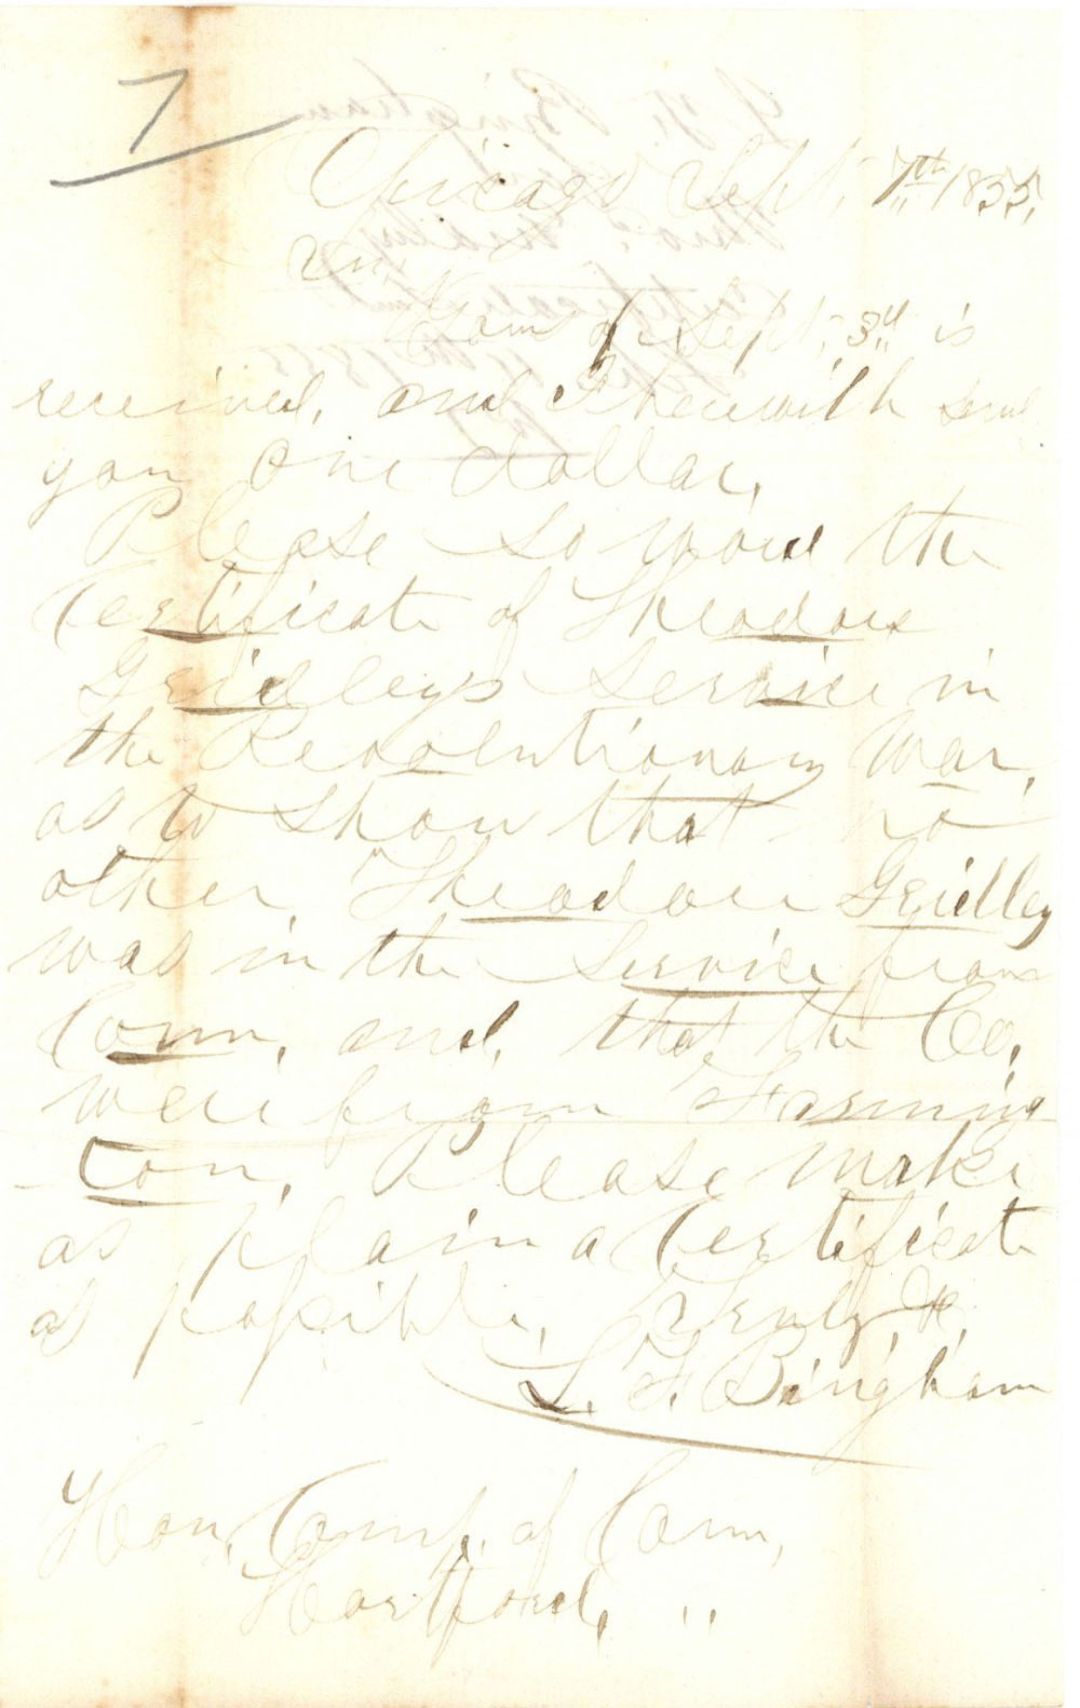 7
Chicago Sept. 7th 1855,
Dr. Sir
Yours of Sept. 3d is
received, and I herewith send
you One dollar,
Please so word the
Certificate of Theodore
Gridley's Service in
the Revolutionary War,
as to show that no
other Theodore Gridley
was in the Service from
Conn, and, that the Co,
were from Farming
ton, Please make
as plain a Certificate
as possible, Truly &c.
L. F. Bingham
Hon, Comp. of Conn,
Hartford, "